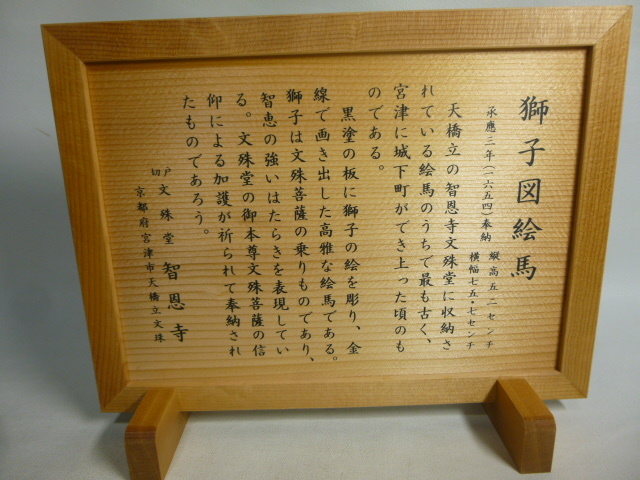 獅子図絵馬
承應三年(一六五四)奉納
縦高五二センチ
横幅七五・七センチ
天橋立の智恩寺文殊堂に収納さ
れている絵馬のうちで最も古く、
宮津に城下町ができ上った頃のも
のである。
黒塗の板に獅子の絵を彫り、金
線で画き出した高雅な絵馬である。
獅子は文殊菩薩の乗りものであり、
智恵の強いはたらきを表現してい
る。文殊堂の御本尊文殊菩薩の信
仰による加護が祈られて奉納され
たものであろう。
切戸文殊堂 智恩寺
京都府宮津市天橋立文珠